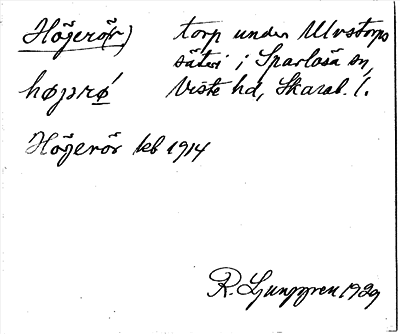 Höjerö(r) torp under Ulvstorps
säteri i Sparlösa sn,
højrǿ Viste hd, Skarab. l.
Höjerör kb 1914
R. Ljunggren 1929